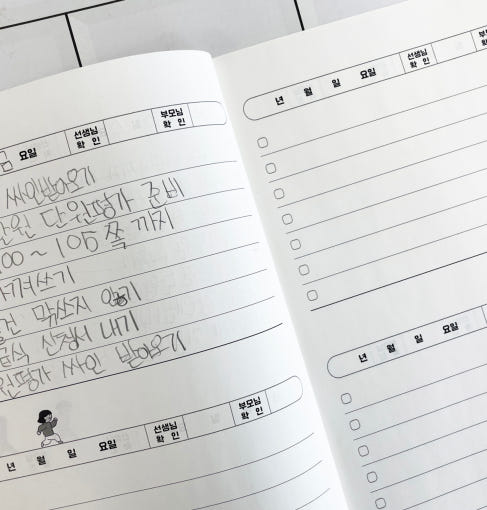 요일 선생님 확인 부모님 확인
싸인받아오기
단원평가 준비
100 ~ 105 쪽 까지
쓰기
막쓰지 않기
급식 신청서 내기
단원평가 싸인 받아오기
년 월 일 요일 선생님 확인 부모님 확인
년 월 일 요일 선생님 확인
년 월 일 요일